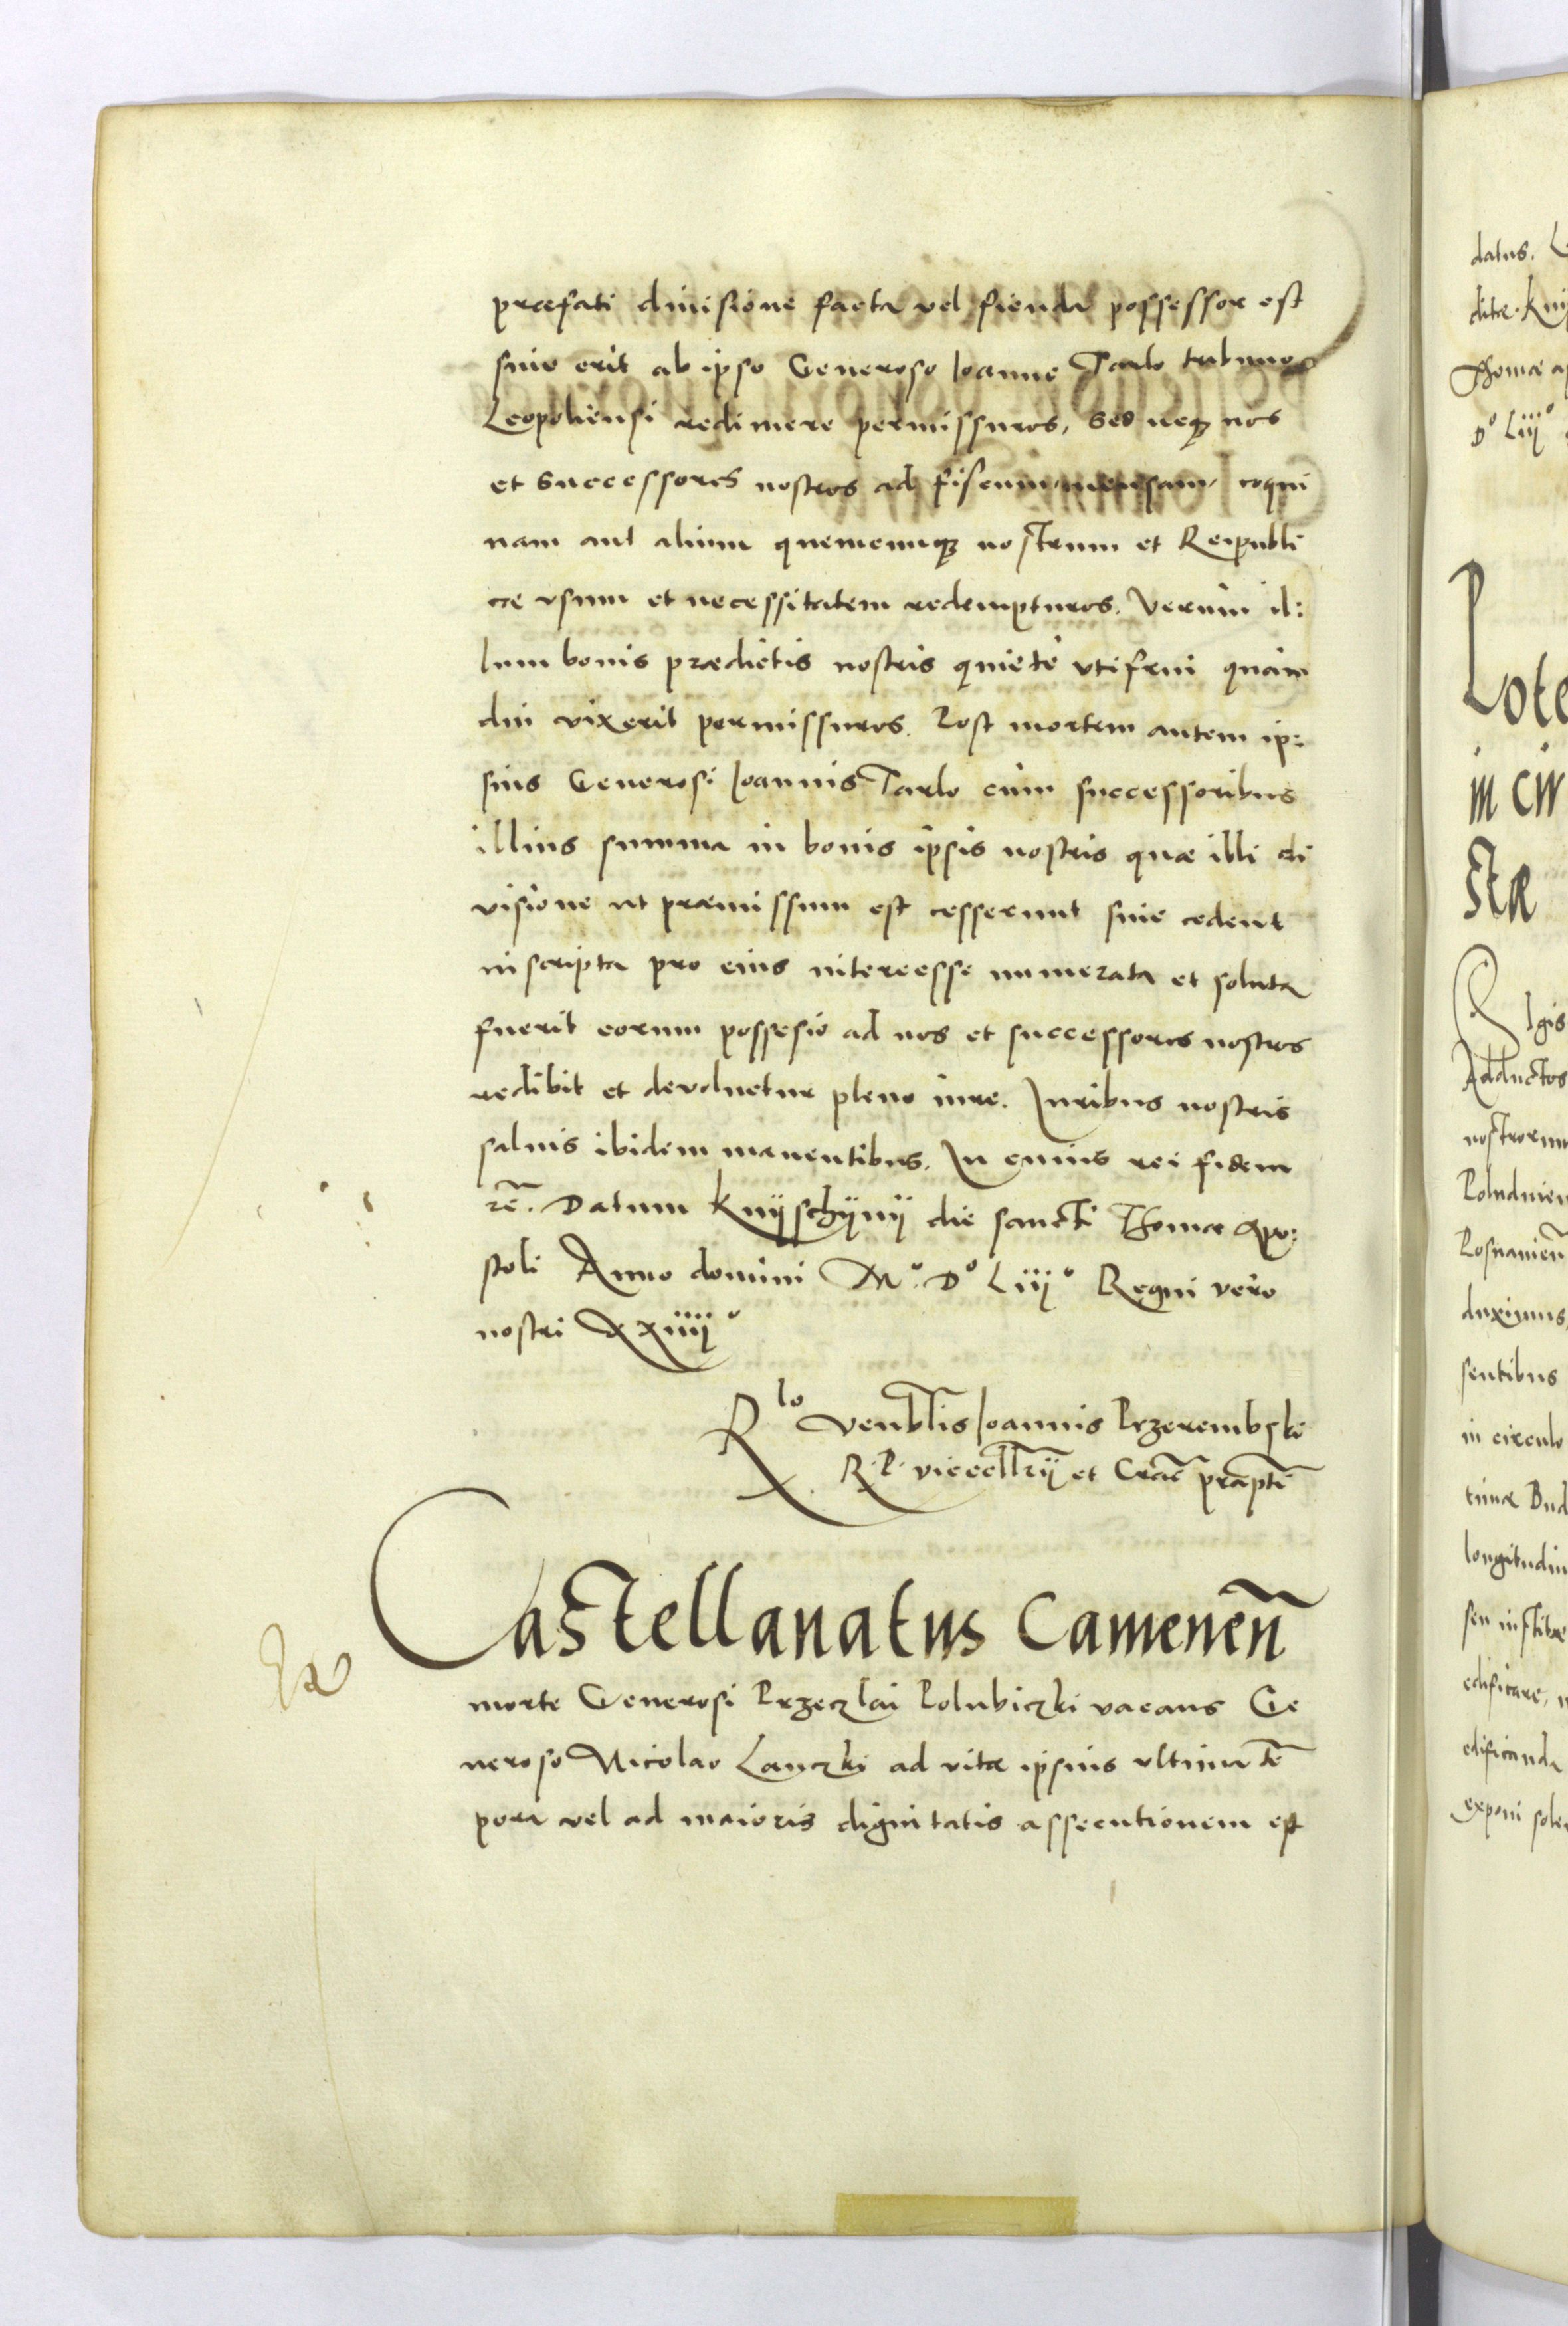 præfati diuisione facta vel fienda possessor est
siue erit ab ipso Generoso Joanne Tarlo tribuno
Leopoliensi redimere permissuros, sed neqȝ nos
et successores nostros ad fiscum, mensam, coqui
nam aut alium quemcumqȝ nostrum et Reipubli
cæ vsum et necessitatem redempturos. Verum il:
lum bonis prædictis nostris quiete vti frui quam
diu vixerit permissuros. Post mortem autem ip:
sius Generosi Joannis Tarlo cum successoribus
illius summa in bonis ipsis nostris quæ illi di
uisione ut præmissum est cesserunt siue cedent
inscripta pro eius intereesse numerata et soluta
fuerit eorum possesio ad nos et successores nostros
redibit et devoluetur pleno iure. Juribus nostris
saluis ibidem manentibus. In cuius rei fidem
rē. Datum Knijschijnij die sancti Thomæ Apo:
stoli Anno domini Mº. Dº Liijº Regni vero
nostri xxiiijº
Rlo venblis Joannis Przerembski
R. P. vicecllrij et Crac præpti
Castellanatus Camenen̄
morte Generosi Przeczlai Polubiczki vacans Ge
neroso Nicolao Lanczki ad vitæ ipsius vltima tē
pora vel ad maioris dignitatis assecutionem est
datus.
Thomæ
Dº Liijº
Pote
in civ
stæ
Adductos
nostrorum
Posnanien̄
duximus,
sentibus
in circulo
longitudin
edificare,
edificanda
exponi